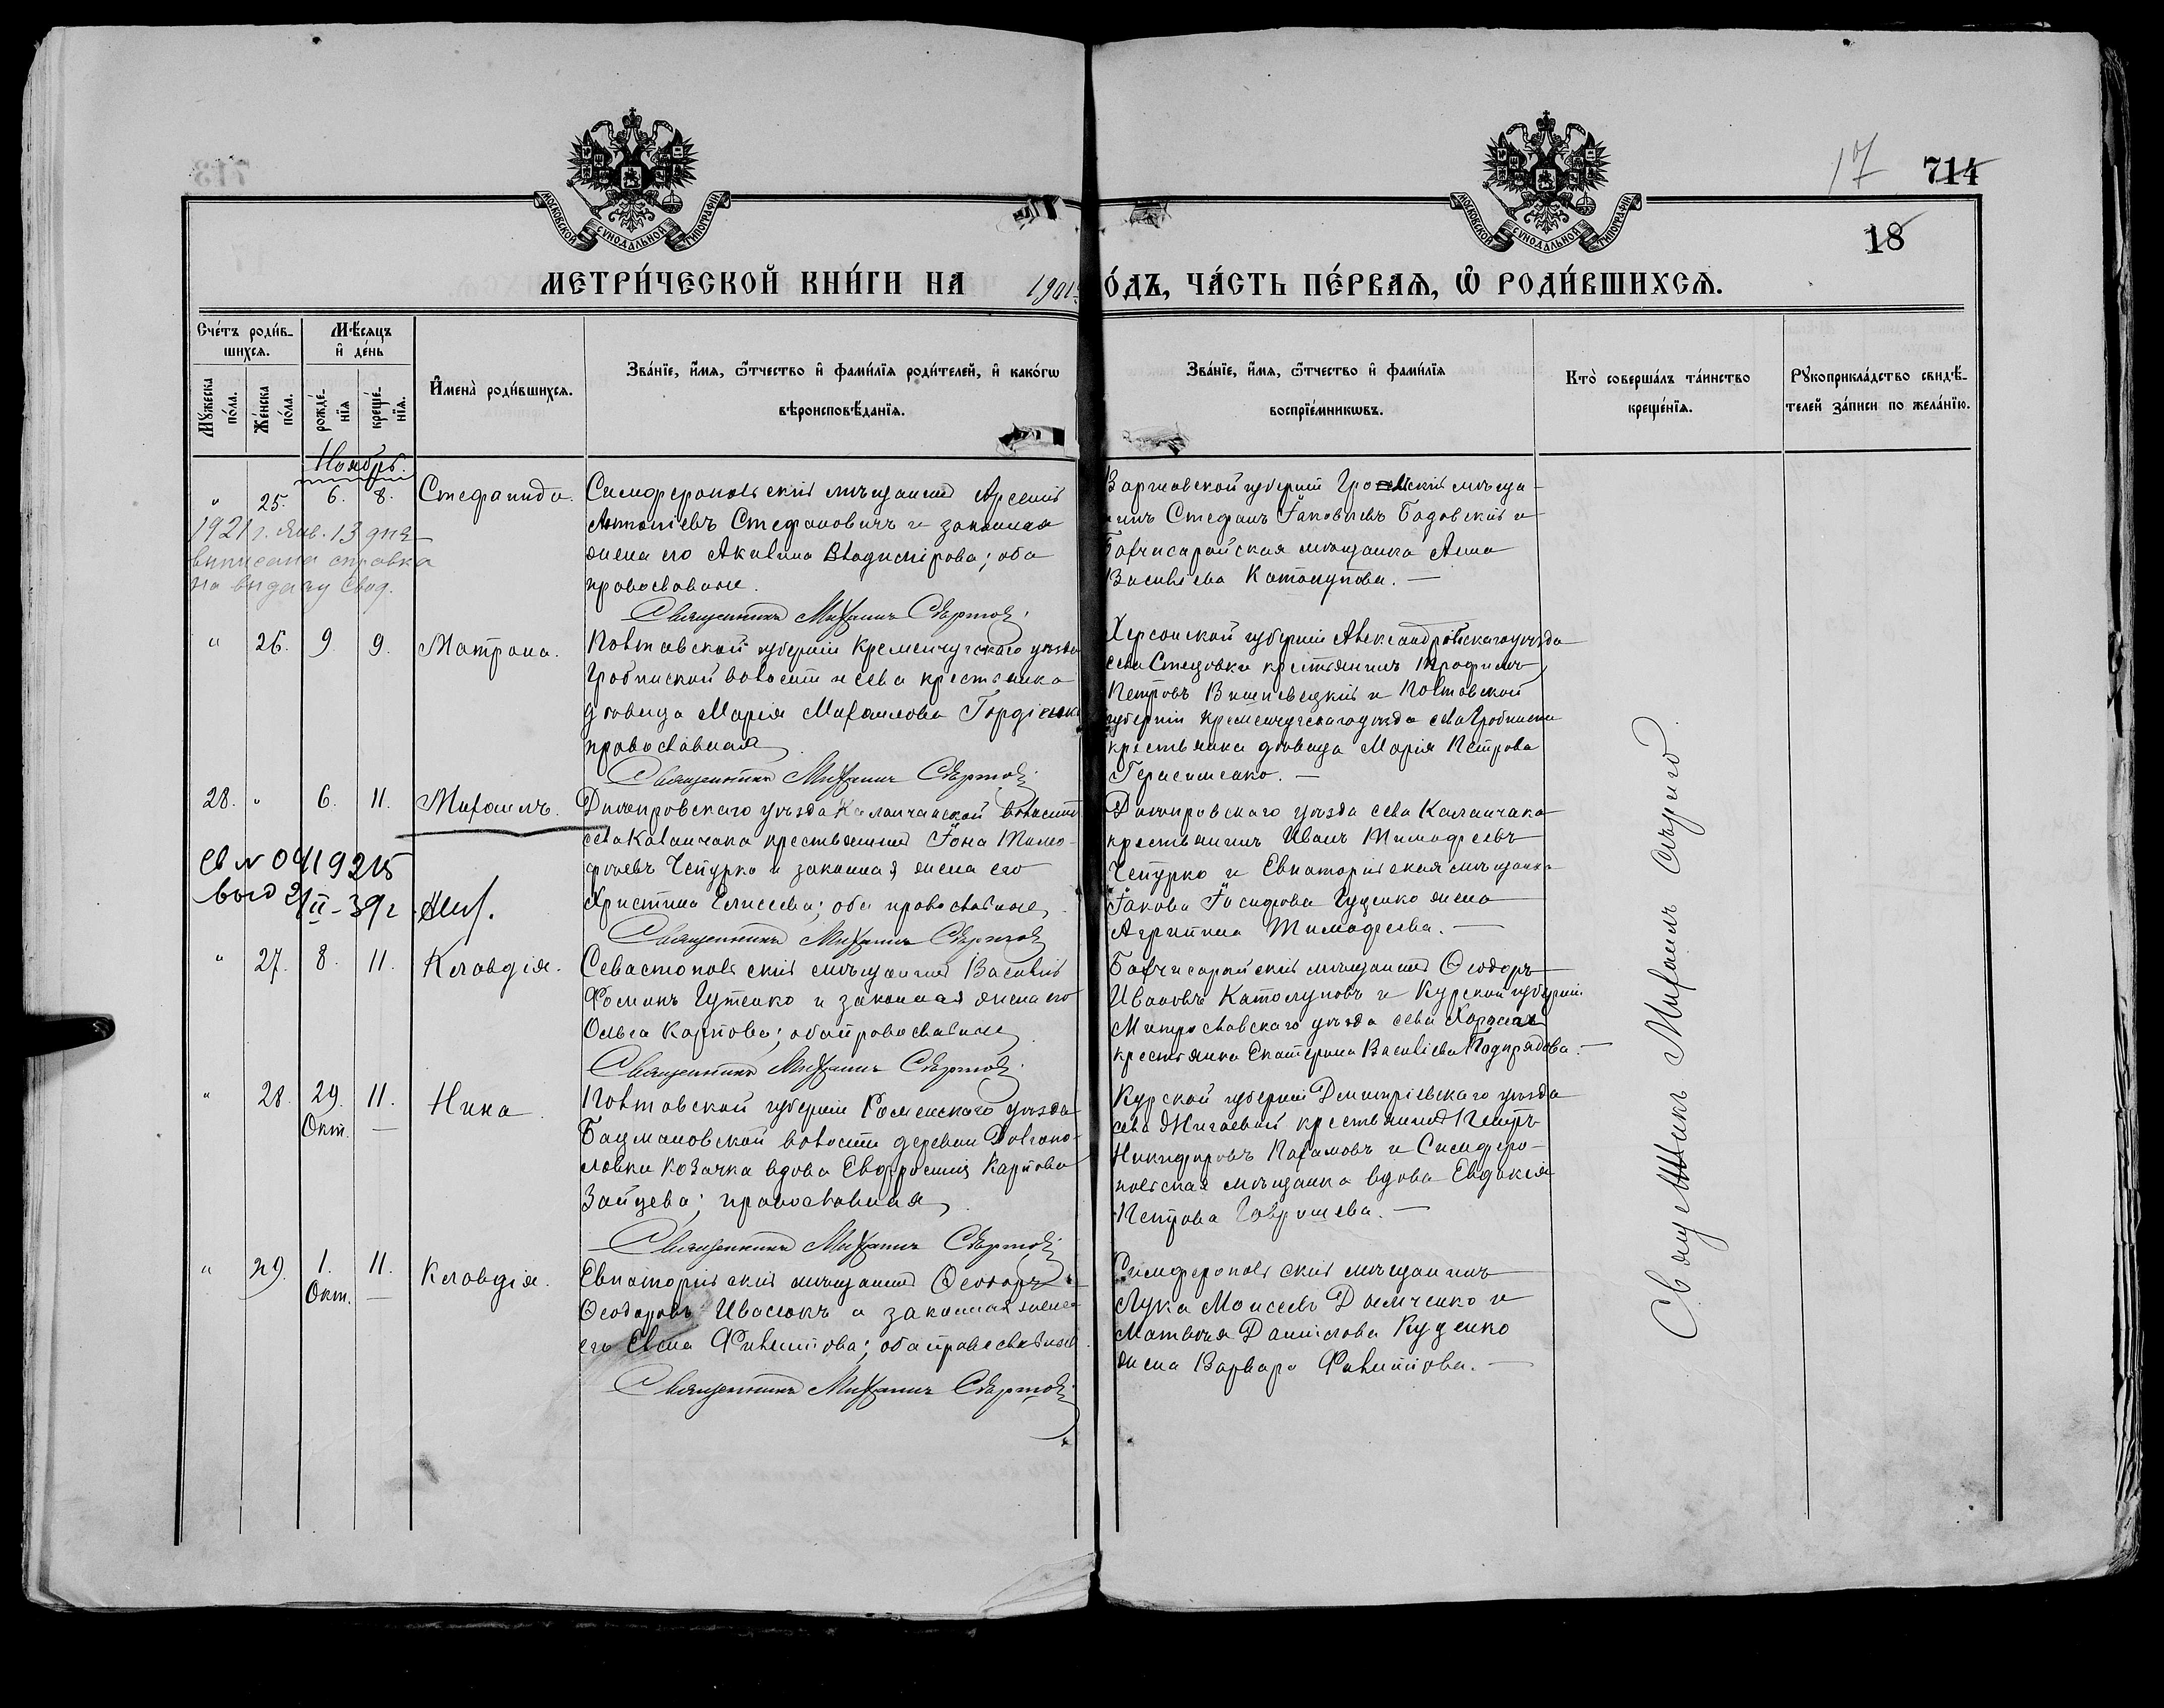 17 714
18
МОСКОВСКОЙ СУНОДАЛЬНОЙ ТИПОГРАФІИ
МОСКОВСКОЙ СУНОДАЛЬНОЙ ТИПОГРАФІИ
МЕТРИ́ЧЕСКОЙ КНИ́ГИ НА 1901 О́ДЪ, ЧА́СТЬ ПЕ́РВАѦ, Ѽ РОДИ́ВШИХСѦ.
Сче́тъ роди́в-
шихсѧ.
Мꙋ́жеска по́ла.
Же́нска по́ла.
Мѣ́сѧцъ и҆ де́нь
рожде́-нїѧ
креще́-нїѧ.
И҆мена̀ роди́вшихсѧ.
Зва́нїе, и҆́мѧ, ѻ҆́тчество и҆ фами́лїѧ роди́телей, и҆ како́гѡ
вѣроисповѣ́данїѧ.
Зва́нїе, и҆́мѧ, ѻ҆́тчество и҆ фами́лїѧ
воспрїе́мникѡвъ.
Кто̀ соверша́лъ та́инство
креще́нїѧ.
Рꙋкоприкла́дство свидѣ́-
телей за́писи по жела́нїю.
Ноябрь.
" 25. 6. 8. Стефанида.
Симферопольскій мѣщанинъ Арсеній
Антоніевъ Стефановичъ и законная
жена его Акилина Владимірова; оба
православные.
Священникъ Михаилъ
Варшавской губерніи Гро скій мѣща-
нинъ Стефанъ Іаковлевъ Бадовскій и
Бахчисарайская мѣщанка Анна
Васильева Католупова. —
1921 г. Янв. 13 дня
выписана справка
на выдачу свид.
" 26. 9. 9. Матрона.
Полтавской губерніи Кременчугскаго уѣзда
волости и села крестьянка
дѣвица Марія Михаилова Гордіенко
православная
Священникъ Михаилъ
Херсонской губерніи Александрійскаго уѣзда
села Стецовки крестьянинъ Трофимъ
Петровъ Вишневецкій и Полтавской
губерніи Кременчугскаго уѣзда села
крестьянка дѣвица Марія Петрова
Герасименко. —
28. " 6. 11. Михаилъ.
Днѣпровскаго уѣзда Каланчакской волости
села Каланчака крестьянинъ Іона Тимо-
феевъ Чепурко и законная жена его
Христина Елисеева; оба православные
Священникъ Михаилъ
Днѣпровскаго уѣзда села Каланчака
крестьянинъ Иванъ Тимофеевъ
Чепурко и Евпаторійская мѣщанка
Іакова Іосифова Гуценко жена
Агрипина Тимофеева. —
св N 0419215
выд 21/II-39 г
" 27. 8. 11. Клавдія.
Севастопольскій мѣщанинъ Василій
Фоминъ Гутенко и законная жена его
Ольга Карпова; оба православные
Священникъ Михаилъ
Бахчисарайскій мѣщанинъ Ѳеодоръ
Ивановъ Католуповъ и Курской губерніи
уѣзда села
крестьянка Екатерина Васильева Подпрядова. —
" 28. 29. Окт. 11. — Нина.
Полтавской губерніи Роменскаго уѣзда
Бацмановской волости деревни Довгапо-
ловки козачка вдова Евфросинія Карпова
Зайцева; православная
Священникъ Михаилъ
Курской губерніи Дмитріевскаго уѣзда
села крестьянинъ Петръ
Никифоровъ Пахомовъ и Симферо-
польская мѣщанка вдова Евдокія
Петрова Гаврышева. —
" 29. 1. Окт. 11. — Клавдія.
Евпаторійскій мѣщанинъ Ѳеодоръ
Ѳеодоровъ Ивасюкъ и законная жена
его Елена Филиппова; оба православные.
Священникъ Михаилъ
Симферопольскій мѣщанинъ
Лука Моисеевъ Дьяченко и
Матвѣя Даниилова Куценко
жена Варвара Филиппова. —
Священникъ Михаилъ